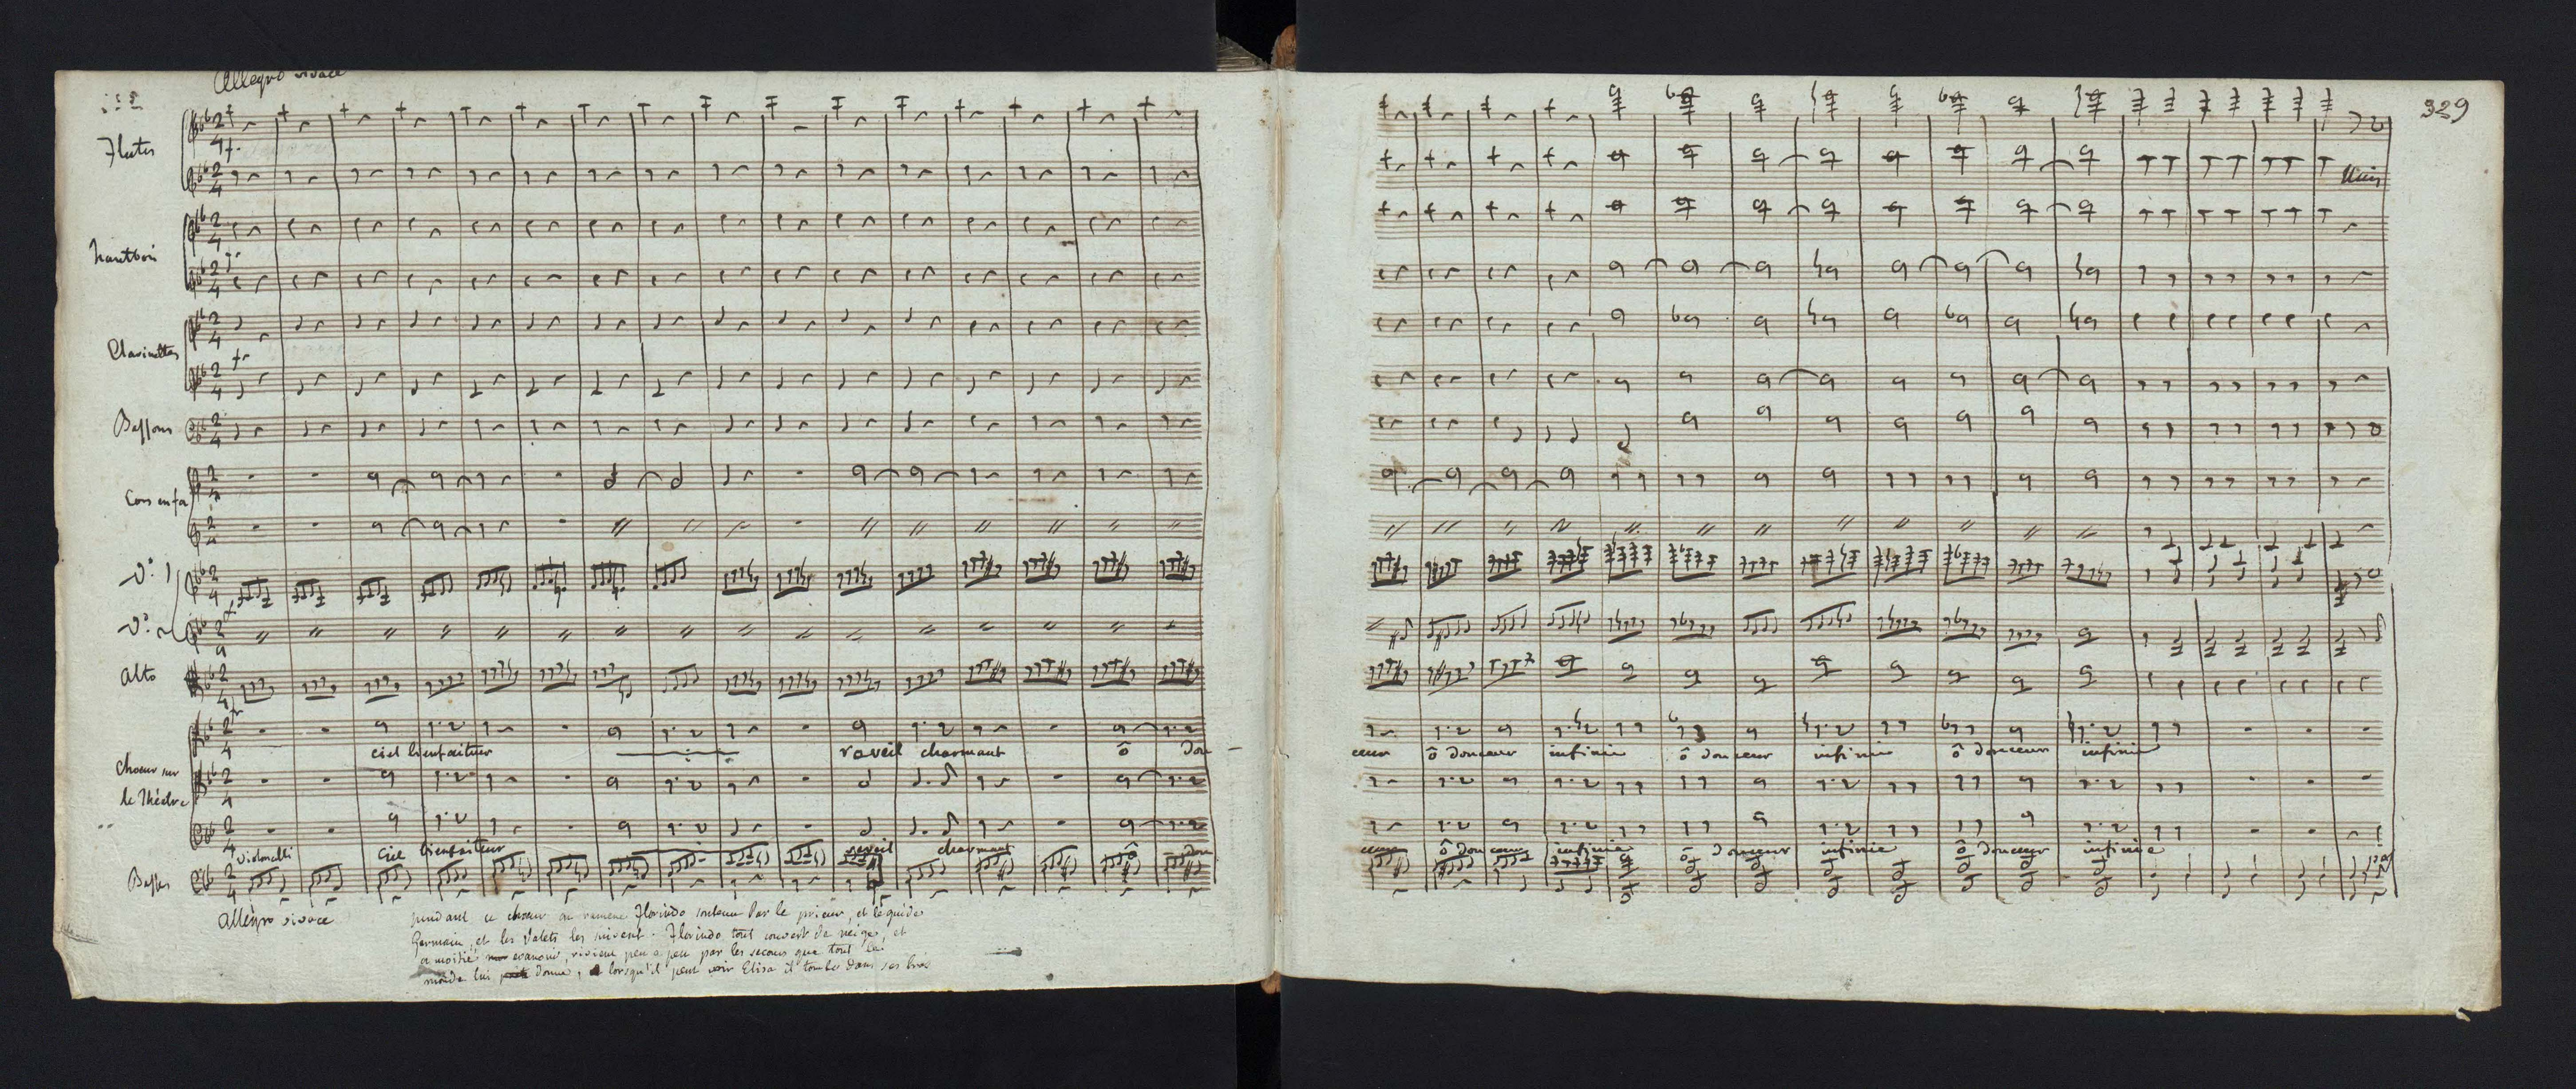 Allegro vivace
329
Flutes
f.
Unis
hautbois
Clarinettes
Bassons
Cors en fa
Vº. 1
Vº. 2
alto
ciel bienfaiteur
reveil charmant ô dou
ceur ô douceur infinie ô douceur infinie ô douceur infinie
Choeur sur
le Théatre
ciel bienfaiteur
reveil charmant ô dou
ceur ô douceur infinie ô douceur infinie ô douceur infinie
violoncelli
Basses
allegro vivace
pendant ce choeur on ramene Florindo soutenu Par le prieur, et le guide
Germain, et les Valets les suivent. Florindo tout couvert de neige, et
a moitié evanoui, revient peu a peu par les secours que tout le
monde lui donne, lorsqu'il peut voir Elisa il tombe dans ses bras